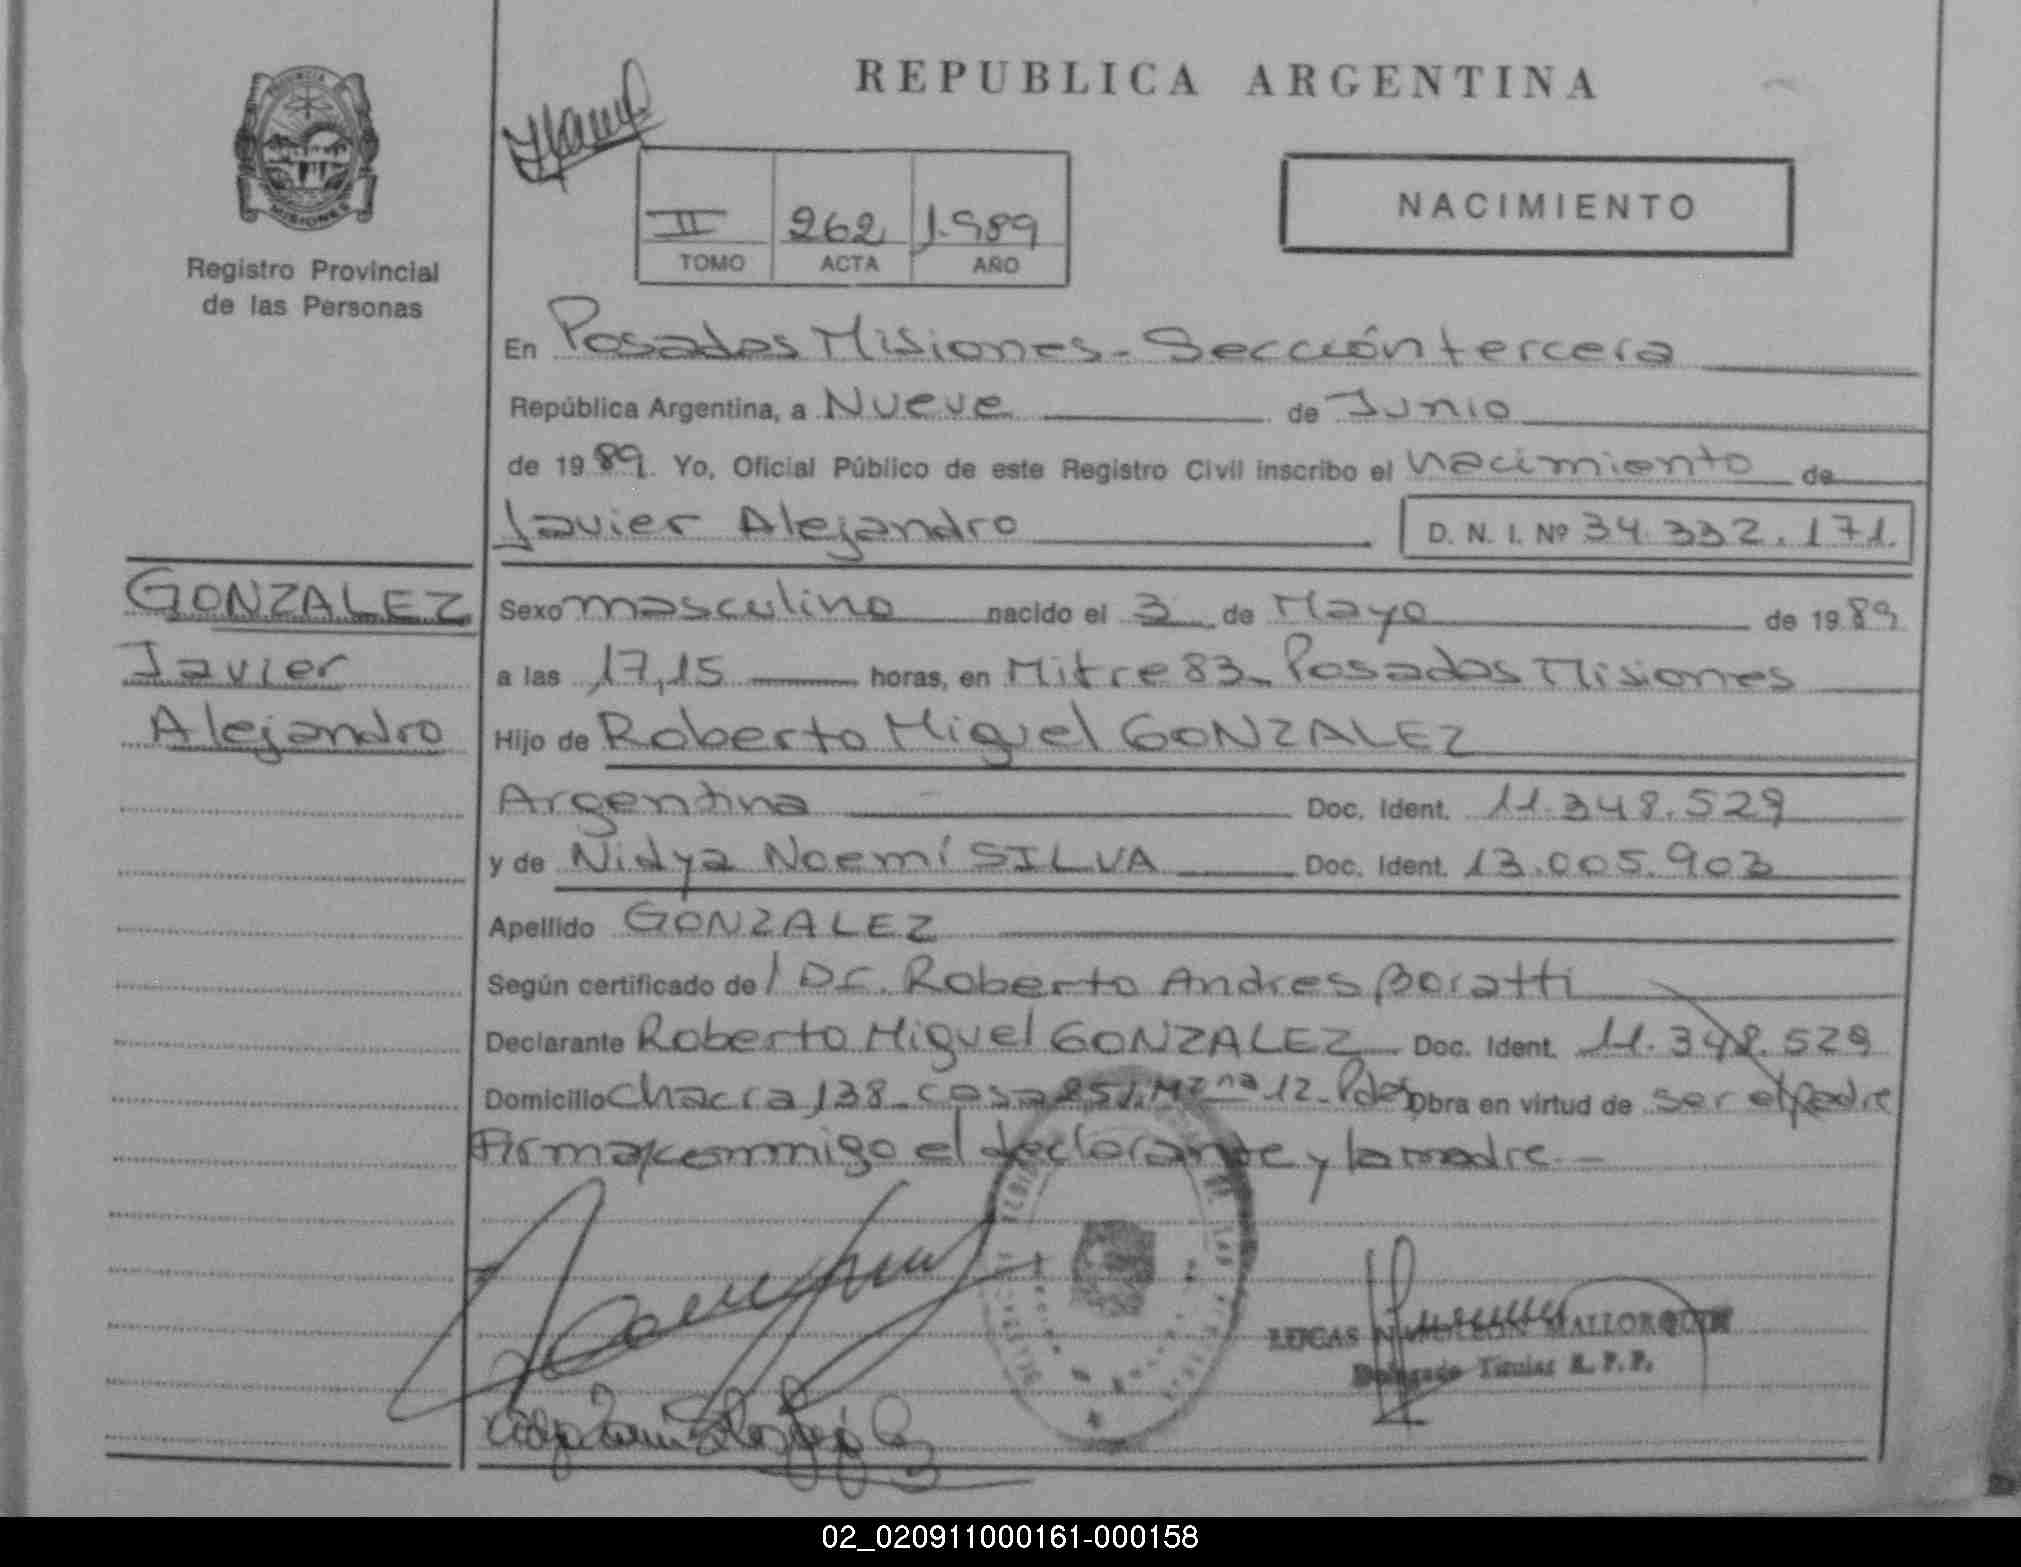 PROVINCIA
MISIONES
Registro Provincial
de las Personas
REPUBLICA ARGENTINA
II 262 1.989
TOMO ACTA AÑO
NACIMIENTO
En Posadas Misiones - Sección tercera
República Argentina, a Nueve de Junio
de 1989. Yo, Oficial Público de este Registro Civil inscribo el nacimiento de
Javier Alejandro D. N. I. Nº 34.332.171.
GONZALEZ
Javier
Alejandro
Sexo masculino nacido el 3 de Mayo de 1989
a las 17,15 horas, en Mitre 83 - Posadas Misiones
Hijo de Roberto Miguel GONZALEZ
Argentina Doc. Ident. 11.348.529
y de Nidya Noemí SILVA Doc. Ident. 13.005.903
Apellido GONZALEZ
Según certificado de l Dr. Roberto Andres Boratti
Declarante Roberto Miguel GONZALEZ Doc. Ident. 11.348.529
Domicilio Chacra 138 - casa 251. Mzna 12 - Pdas Obra en virtud de ser el padre
Firma conmigo el declarante y la madre -
LUCAS NAPOLEON MALLORQUIN
Delegado Titular R. P. P.
02_020911000161-000158